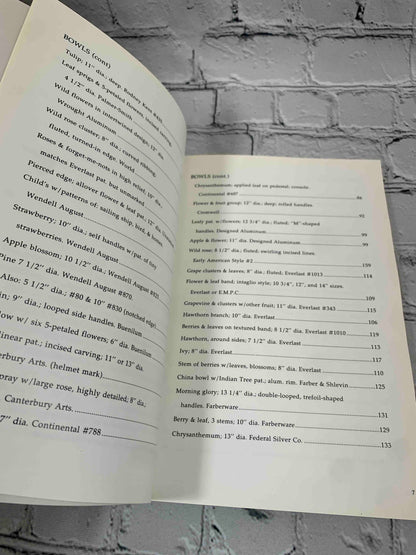 BOWLS (cont)
Tulip; 11" dia.; deep. Rodney Kent
Leaf sprigs & 5-petaled flowers; incised carving;
4 1/2" dia. Palmer-Smith
Wild flowers in intertwined design; 12" dia
Wrought Aluminum
Wild rose cluster; 8" dia.; starred ribbing,
fluted, turned-in edge. World
Roses & forget-me-nots in high relief; 10" dia.
matches Everlast pat. but unmarked
Pierced edge; allover flower & leaf pat.; 12" dia.
Child's w/patterns of: sailing ship, bird, &
Wendell August
Strawberry; 10" dia.; self handles w/pat. of tiny
strawberries. Wendell August
Apple blossom; 10 1/2" dia.; Wendell August
Pine 7 1/2" dia. Wendell August #870.
Also: 5 1/2" dia.; #80 & 10" #830 (notched edge)
in; 9" dia.; looped side handles. Buenilum
ow w/ six 5-petaled flowers; 6" dia. Buenilum
linear pat.; incised carving; 11" or 13" dia.
erbury Arts. (helmet mark)
pray w/large rose, highly detailed; 8" dia.;
Canterbury Arts.
7" dia. Continental #788
BOWLS (cont.)
Chrysanthemum: applied leaf on pedestal; console.
Continental #687
Flower & fruit group; 12" dia.; deep; rolled handles.
Cromwill 92
Leafy pat. w/flowers; 13 3/4" dia.; fluted; "M"-shaped
handles. Designed Aluminum 99
Apple & flower; 11" dia. Designed Aluminum 99
Wild rose; 8 1/2" dia.; fluted; swirling incised lines.
Early American Style #2 159
Grape clusters & leaves; 8" dia.; fluted; Everlast #1013 114
Flower & leaf band; intaglio style; 10 3/4", 12", and 14" sizes.
Everlast or E.M.P.C. 109
Grapevine & clusters w/other fruit; 11" dia. Everlast #343 115
Hawthorn branch; 10" dia. Everlast 106
Berries & leaves on textured band; 8 1/2" dia. Everlast #1010 119
Hawthorn, around sides; 7 1/2" dia. Everlast 113
Ivy; 8" dia. Everlast 110
Stem of berries w/leaves, blossoms; 8" dia. Everlast 117
China bowl w/Indian Tree pat.; alum. rim. Farber & Shlevin 125
Morning glory; 13 1/4" dia.; double-looped, trefoil-shaped
handles. Farberware 131
Berry & leaf, 3 stems; 10" dia. Farberware 129
Chrysanthemum; 13" dia. Federal Silver Co. 133
7